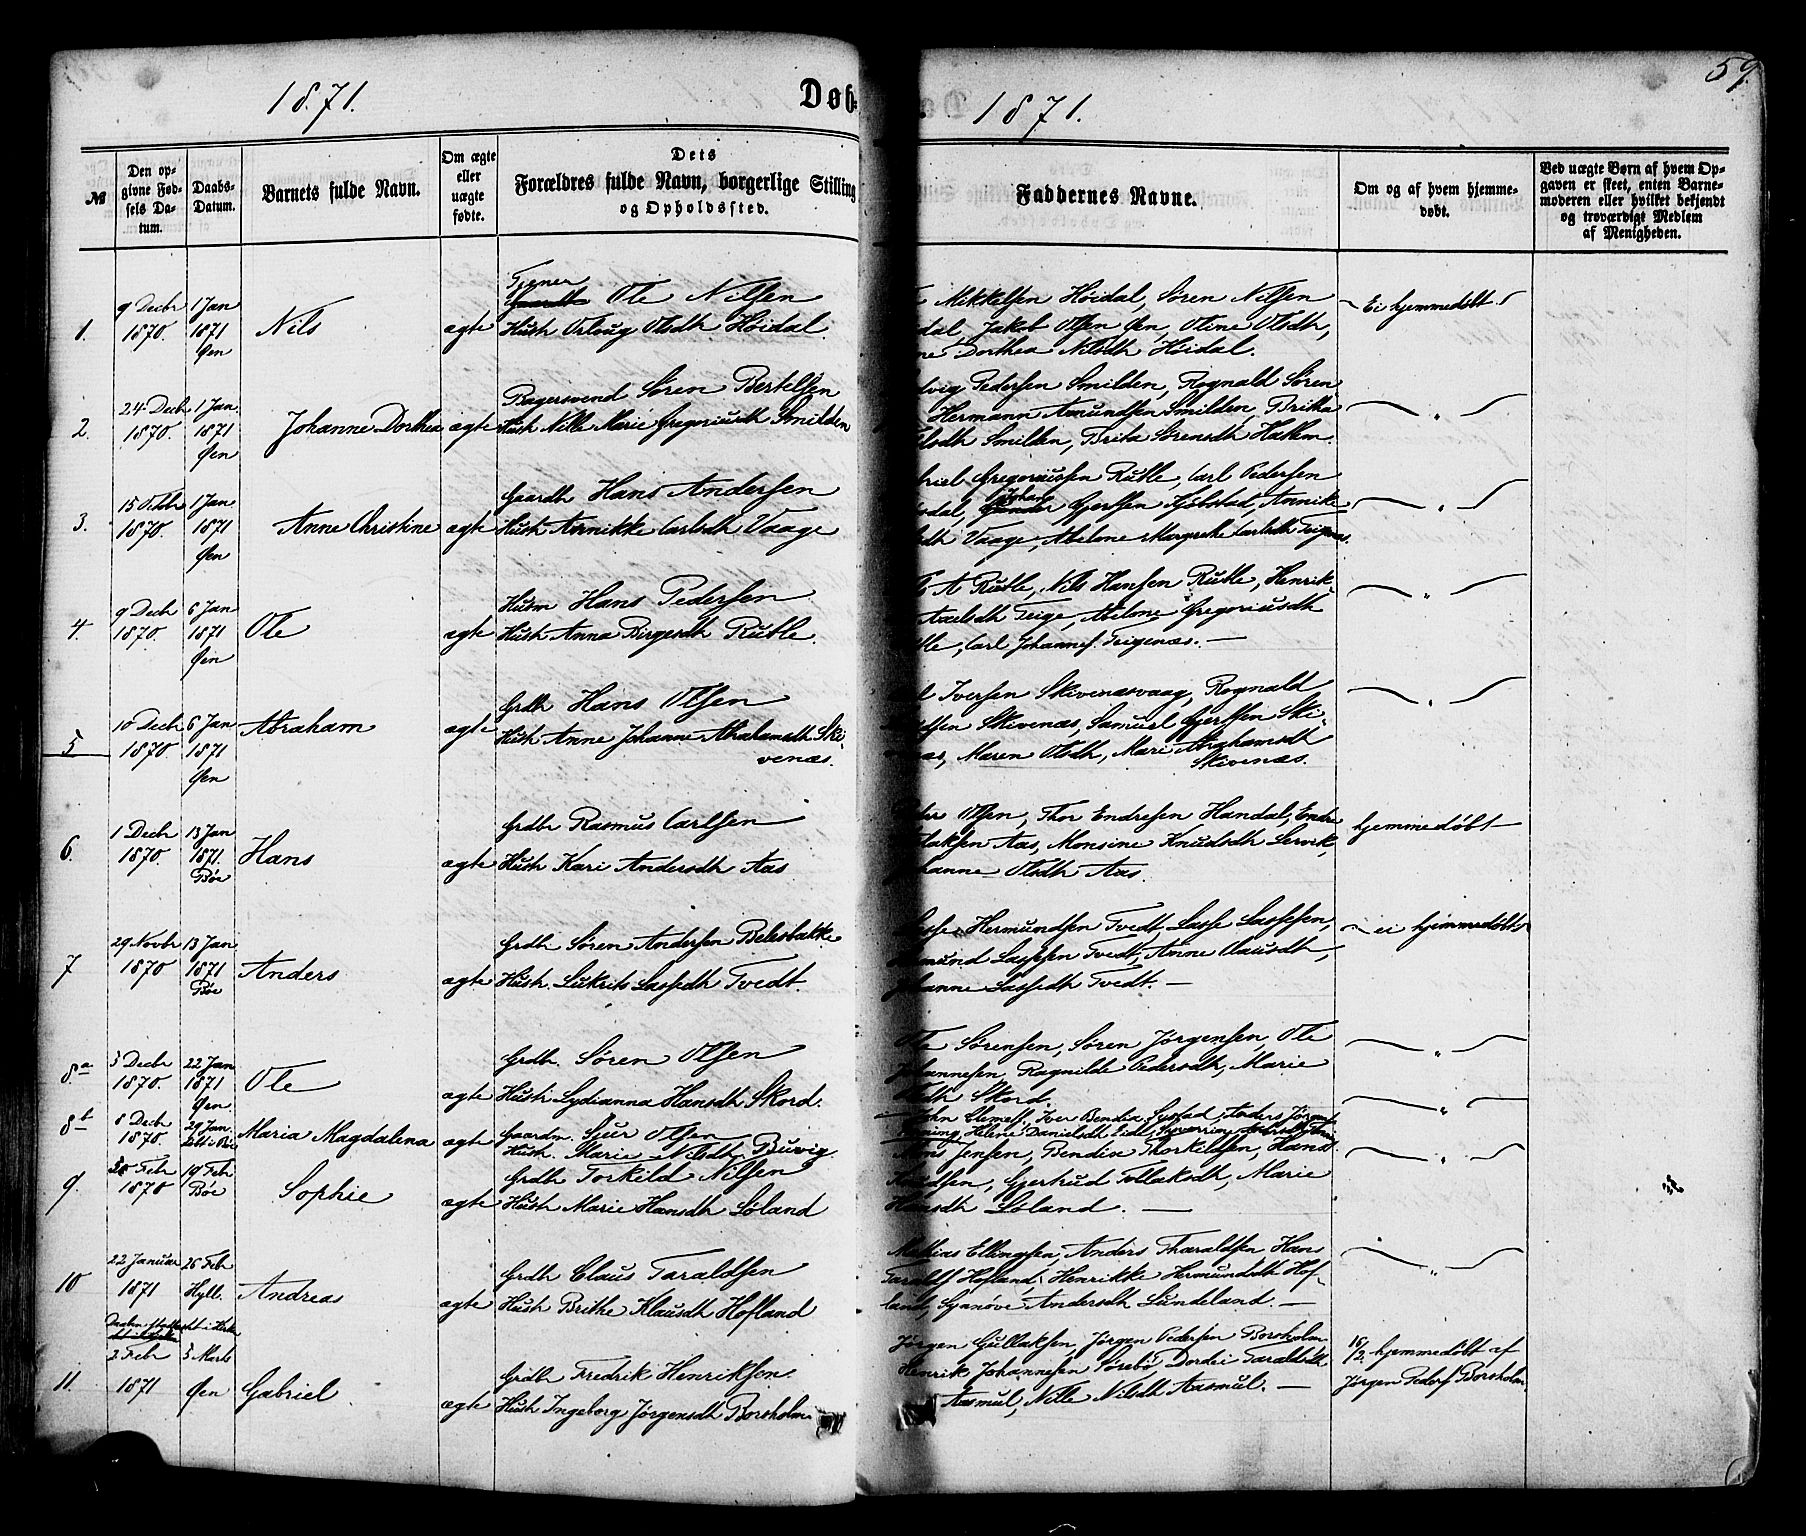 1871.
Døb-
1871.
59.
№
Den op-
givne Fød-
sels Da-
tum.
Daabs-
Datum.
Barnets fulde Navn.
Om ægte
eller
uægte
fødte.
Dets
Forældres fulde Navn, borgerlige Stilling
og Opholdssted.
Faddernes Navne.
Om og af hvem hjemme-
døbt.
Ved uægte Børn af hvem Op-
gaven er skeet, enten Barne-
moderen eller hvilket bekjendt
og troværdigt Medlem
af Menigheden.
1.
9 Decbr
1870.
1 Jan
1871
Øen
Nils
ægte
Tjener
Ole Nilsen
Hustr Orloug Olsdtr Høidal.
Mikkelsen Høidal, Søren Nilsen
dal, Jakob Olsen Øen, Oline Olsdtr,
ne Dorthea Nilsdtr Høidal.
Ei hjemmedøbt
2.
24 Decb
1870.
1 Jan
1871
Øen
Johanne Dorthea
ægte
Bagersvend Søren Bertelsen
Hustr Nille Marie Gregoriusdtr Smilden
dvig Pedersen Smilden, Rognald Søren
Hermann Amundsen Smilden, Britha
lsdtr Smilden, Brita Sørensdtr Hatlem
〃
3.
15 Octbr
1870.
1 Jan
1871
Øen
Anne Christine
ægte
Gaardbr Hans Andersen
Hustr Annikke Carlsdtr Vaage
briel Gregoriussen Rutle, Carl Pedersen
dal, Johan Gjertsen Kjelstad, Annike
dtr Vaage, Abelone Margrethe Carlsdtr Teigenæs.
〃
4.
9 Decb
1870.
6 Jan
1871
Øen
Ole
ægte
Husm Hans Pedersen
Hustr Anna Birgesdtr Rutle.
A Rutle, Nils Hansen Rutle, Henrik
Axelsdtr Teige, Abelone Gregoriusdtr
tle, Carl Johannes. Teigenæs. —
〃
5
10 Decbr
1870.
6 Jan
1871
Øen
Abraham
ægte
Grdbr Hans Olsen
Hustr Anne Johanne Abrahamsdtr Ski-
venæs.
l Iversen Skivenæsvaag, Rognald
sen Skivenæs, Samuel Gjertsen Ski-
næs, Maren Olsdtr, Mari Abrahamsdtr
Skivenæs.
〃
6.
1 Decbr
1870.
13 Jan
1871.
Bøe
Hans
ægte
Grdbr Rasmus Carlsen
Hustr Kari Andersdtr Aas
der Olsen, Thor Endresen Handal, Endre
laksen Aas, Monsine Knudsdtr Lervik,
Johanne Olsdtr Aas.
hjemmedøbt
7
29 Novbr
1870
13 Jan
1871
Bøe
Anders
ægte
Grdbr Søren Andersen Belesbakke
Hustr. Lukrits Lassedtr Tvedt.
Lasse Hermundsen Tvedt, Lasse Lassesen,
mund Lassesen Tvedt, Anne Clausdtr,
Johanne Lassedtr Tvedt. —
ei hjemmedøbt
8.a
3 Decbr
1870.
22 Jan
1871
Øen
Ole
ægte
Grdbr. Søren Olsen
Hustr Lydianna Hansdtr Skord.
Ole Sørensen, Søren Jørgensen, Ole
Johannesen Ragnilde Pedersdtr, Marie
Olsdtr Skord.
〃
8b
8 Decb
1870.
29 Jan
Maria Magdalena
ægte
Gaardm. Sjur Olsen
Hustr. Marie Nilsdtr Buvig
John Clemets, Iver Bendix. Systad, Anders Jørgens
Helene Danielsdtr Eide,
〃
9.
20 Feb
1870
19 Feb
Bøe
Sophie
ægte
Grdbr Torkild Nilsen
Hustr Marie Hansdtr Løland
Mons Jensen, Bendix Thorkildsen, Hans
Knudsen, Gjertrud Tollaksdtr, Marie
Hansdtr Løland. —
〃
10
22 Januar
1871
26 Feb
Hyll.
Andreas
ægte
Grdbr Claus Taraldsen
Hustr Brithe Klausdtr Hofland
Mathias Ellingsen, Anders Tharaldsen Hans
Taralds Hofland, Henrikke Hermundsdtr Hof-
land, Gjanøve Andersdtr Lundeland. —
〃
11.
2 Febr
1871
5 Marts
Øen
Gabriel
ægte
Grdbr Fredrik Henriksen.
Hustr Ingeborg Jørgensdtr Borsholm
Jørgen Gullaksen, Jørgen Pedersen Borsholm
Henrik Johannesen Sørebø Dordei Taraldsdtr
Aasmul, Nille Nilsdtr Aasmul. —
15/2. hjemmedøbt af
Jørgen Peders Borsholm